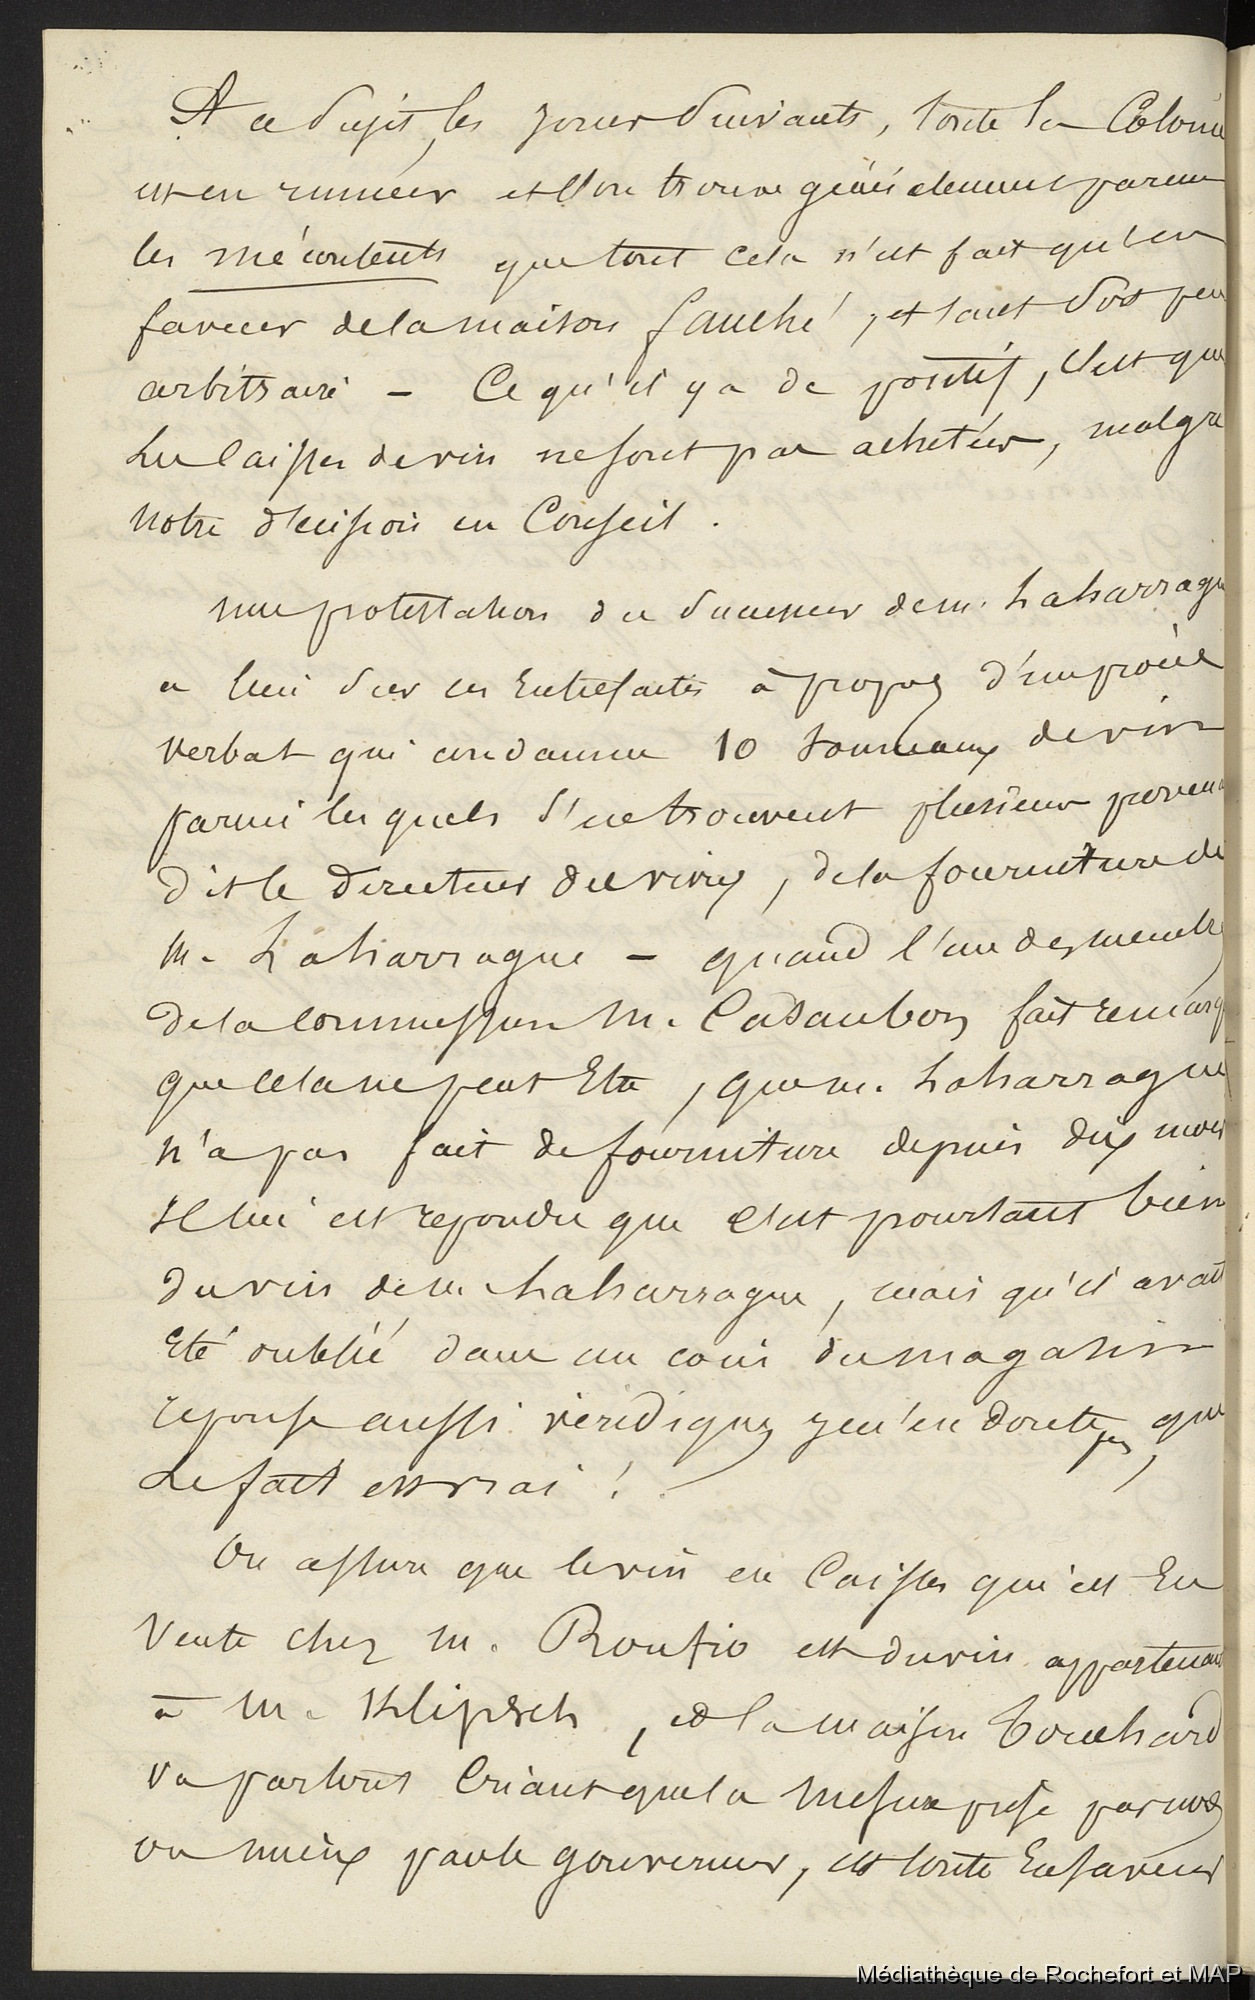 A ce sujet, les jours suivants, toute la Colonie
est en rumeur et l'on trouve généralement parmi
les mécontents que tout cela n'est fait qu'en
faveur de la maison fauché, et tant soit peu
arbitraire — Ce qu'il y a de positif, c'est que
les caisses de vin ne sont pas achetées, malgré
notre décision en Conseil.
une protestation du successeur de m. Laharrague
a lieu sur ces Entrefaites à propos d'un procès
verbal qui condamne 10 tonneaux de vin
parmi lesquels s'en trouvent plusieurs provenant
dit le Directeur des vivres, de la fourniture de
m. Laharrague — quand l'un des membres
de la commission M. Casaubon fait remarquer
que cela ne peut Etre, que m. Laharrague
n'a pas fait de fourniture depuis dix mois
Il lui est répondu que c'est pourtant bien
du vin de m. Laharrague, mais qu'il avait
Eté oublié dans un coin du magasin
réponse aussi véridique, je n'en doute pas, que
le fait est vrai !
On assure que le vin en Caisses qui est En
Vente chez m. Roufio est du vin appartenant
à M. Klipsch, et la maison Touchard
va partout Criant que la Mesure prise par nous
ou mieux par le gouverneur, est toute En faveur
Médiathèque de Rochefort et MAP